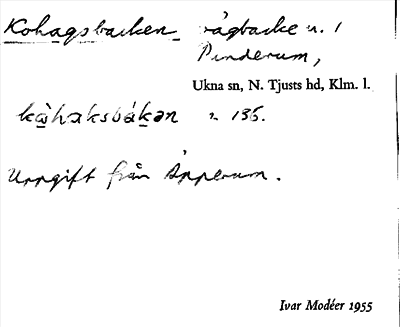 Kohagsbacken vägbacke n. 1
Punderum,
Ukna sn, N. Tjusts hd, Klm. l.
kàhaksbákən n 135.
Uppgift från Äpperum.
Ivar Modéer 1955